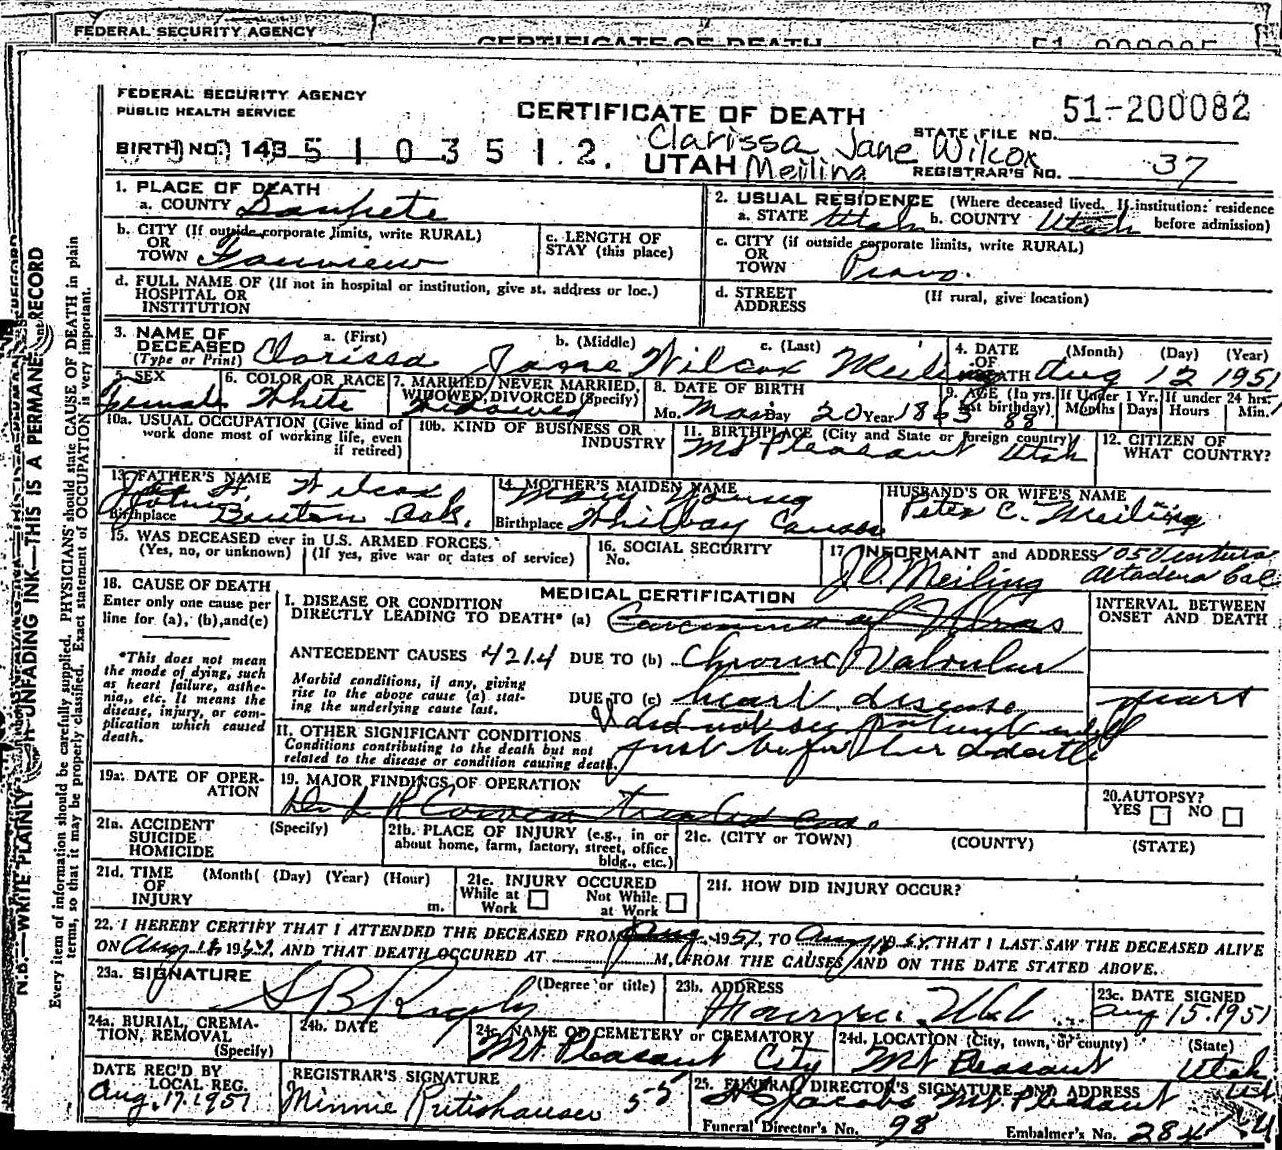 FEDERAL SECURITY AGENCY
CERTIFICATE OF DEATH
FEDERAL SECURITY AGENCY
PUBLIC HEALTH SERVICE
CERTIFICATE OF DEATH
51-200082
STATE FILE NO.
Clarissa Jane Wilcox
BIRTH NO. 143 5 1 0 3 5 1 2.
UTAH Meiling
REGISTRAR'S NO. 37
1. PLACE OF DEATH
a. COUNTY Sanpete
2. USUAL RESIDENCE (Where deceased lived. If institution: residence before admission)
a. STATE Utah b. COUNTY Utah
b. CITY (If outside corporate limits, write RURAL)
OR
TOWN Fairview
c. LENGTH OF
STAY (this place)
c. CITY (if outside corporate limits, write RURAL)
OR
TOWN Provo.
d. FULL NAME OF (If not in hospital or institution, give st. address or loc.)
HOSPITAL OR
INSTITUTION
d. STREET
ADDRESS
(If rural, give location)
3. NAME OF
DECEASED
(Type or Print)
a. (First) b. (Middle) c. (Last)
Clarissa Jane Wilcox Meiling
4. DATE
OF
DEATH
(Month) (Day) (Year)
Aug 12 1951
5. SEX
Female
6. COLOR OR RACE
White
7. MARRIED, NEVER MARRIED,
WIDOWED, DIVORCED (Specify)
Widowed
8. DATE OF BIRTH
Mo. May Day 20 Year 1863
9. AGE (In yrs. last birthday) 88
If Under 1 Yr. Months Days
If under 24 hrs. Hours Min.
10a. USUAL OCCUPATION (Give kind of
work done most of working life, even
if retired)
10b. KIND OF BUSINESS OR
INDUSTRY
11. BIRTHPLACE (City and State or foreign country)
Mt Pleasant Utah
12. CITIZEN OF
WHAT COUNTRY?
13. FATHER'S NAME
John H. Wilcox
Birthplace Benton Ark.
14. MOTHER'S MAIDEN NAME
Mary Young
Birthplace
HUSBAND'S OR WIFE'S NAME
Peter C. Meiling
15. WAS DECEASED ever in U.S. ARMED FORCES.
(Yes, no, or unknown) (If yes, give war or dates of service)
16. SOCIAL SECURITY
No.
17 INFORMANT and ADDRESS 105 Ventura
J.O. Meiling Altadena Cal
18. CAUSE OF DEATH
Enter only one cause per
line for (a), (b),and(c)
*This does not mean
the mode of dying, such
as heart failure, asthe-
nia,, etc. It means the
disease, injury, or com-
plication which caused
death.
MEDICAL CERTIFICATION
I. DISEASE OR CONDITION
DIRECTLY LEADING TO DEATH* (a)
ANTECEDENT CAUSES 421.4 DUE TO (b) Chronic Valvular
Morbid conditions, if any, giving
rise to the above cause (a) stat-
ing the underlying cause last.
DUE TO (c) heart disease
II. OTHER SIGNIFICANT CONDITIONS
Conditions contributing to the death but not
related to the disease or condition causing death.
I did not see patient until
just before her death
INTERVAL BETWEEN
ONSET AND DEATH
years
19a. DATE OF OPER-
ATION
19. MAJOR FINDINGS OF OPERATION
20.AUTOPSY?
YES NO
21a. ACCIDENT
SUICIDE
HOMICIDE
(Specify)
21b. PLACE OF INJURY (e.g., in or
about home, farm, factory, street, office
bldg., etc.)
21c. (CITY OR TOWN) (COUNTY) (STATE)
21d. TIME
OF
INJURY
(Month( (Day) (Year) (Hour)
m.
21e. INJURY OCCURED
While at
Work
Not While
at Work
21f. HOW DID INJURY OCCUR?
22. I HEREBY CERTIFY THAT I ATTENDED THE DECEASED FROM Aug 1951, TO Aug THAT I LAST SAW THE DECEASED ALIVE
ON Aug 19 , AND THAT DEATH OCCURED AT M, FROM THE CAUSES AND ON THE DATE STATED ABOVE.
23a. SIGNATURE (Degree or title)
S B Rigby
23b. ADDRESS
Utah
23c. DATE SIGNED
Aug 15. 1951
24a. BURIAL, CREMA-
TION, REMOVAL
(Specify)
24b. DATE
24c. NAME OF CEMETERY or CREMATORY
Mt Pleasant City
24d. LOCATION (City, town, or county) (State)
Mt Pleasant Utah
DATE REC'D BY
LOCAL REG.
Aug. 17. 1951
REGISTRAR'S SIGNATURE
Minnie Rutishauser 55
25. FUNERAL DIRECTOR'S SIGNATURE AND ADDRESS
Jacobs Mt Pleasant
Funeral Director's No. 98 Embalmer's No. 284
N.B.—WRITE PLAINLY UNFADING INK—THIS IS A PERMANENT RECORD
Every item of information should be carefully supplied. PHYSICIANS should state CAUSE OF DEATH in plain
terms, so that it may be properly classified. Exact statement of OCCUPATION is very important.